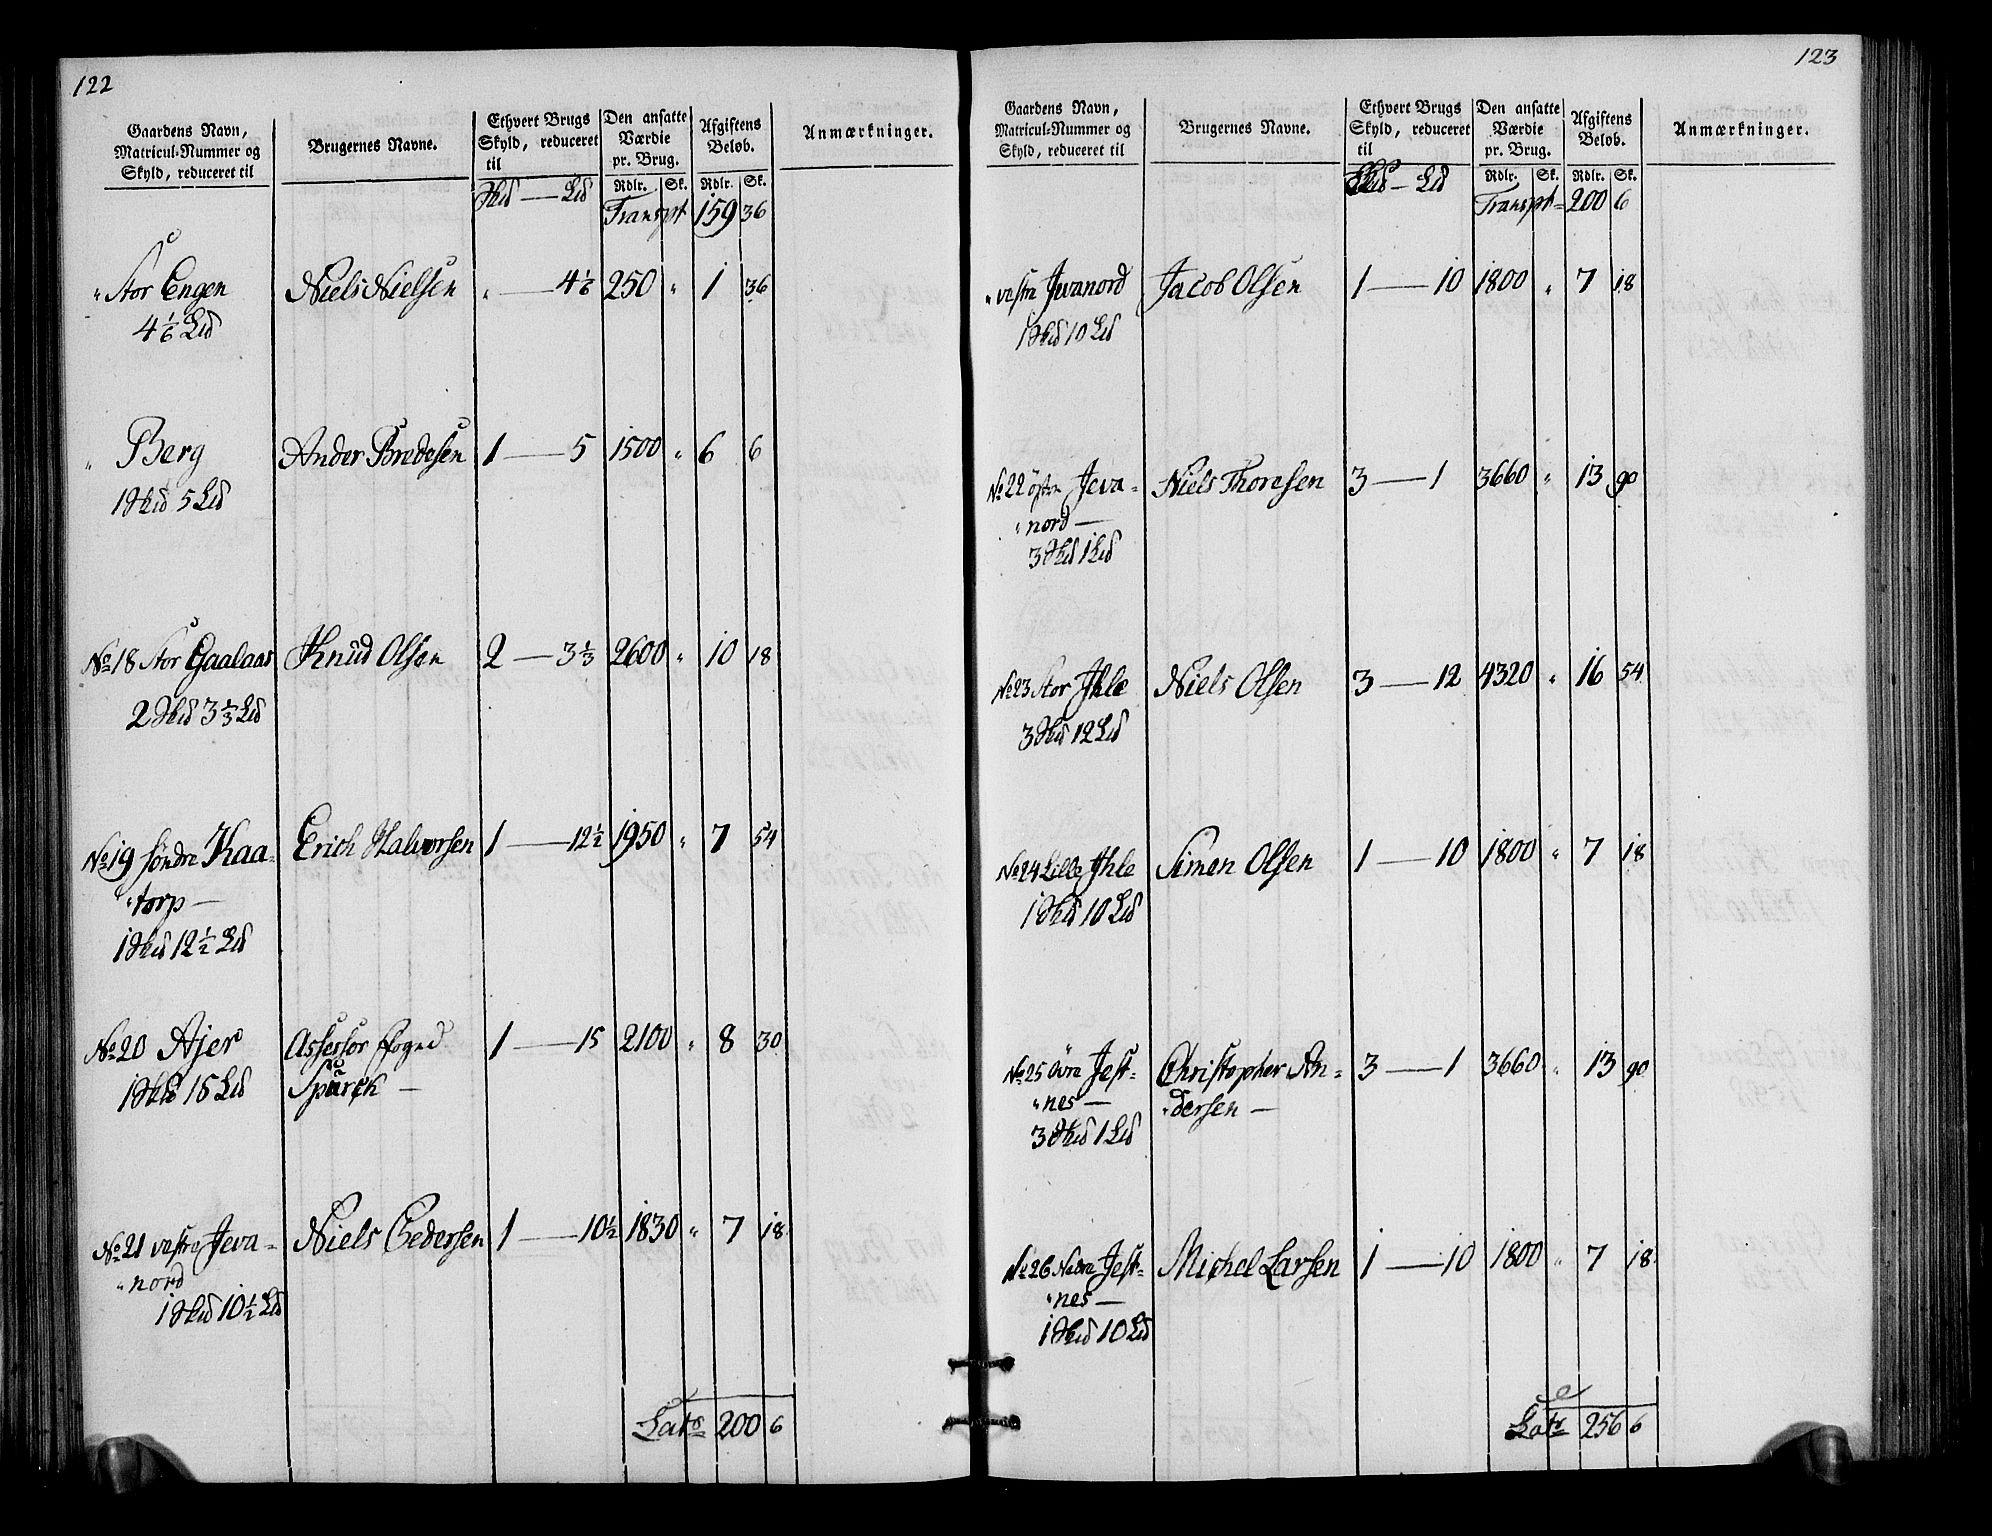 122
Gaardens Navn,
Matricul-Nummer og
Skyld, reduceret til
Brugernes Navne.
Ethvert Brugs
Skyld, reduceret
til
Hud — L℔
Den ansatte
Værdie
pr. Brug.
Rdlr. Sk.
Afgiftens
Beløb.
Rdlr. Sk.
Anmærkninger.
Transpt 159 36
" Stor Engen Niels Nielsen " — 4 1/6 250 " 1 36
4 1/6 L℔
" Berg Ander Bredesen 1 — 5 1500 " 6 6
1 Hud 5 L℔
No 18 Stor Gaalaas Knud Olsen 2 — 3 1/3 2600 " 10 18
2 Hud 3 1/3 L℔
No 19 søndre Kaa- Erich Halvorsen 1 — 12 1/2 1950 " 7 54
"torp —
1 Hud 12 1/2 L℔
No 20 Ajer Assessor Foged 1 — 15 2100 " 8 30
1 Hud 15 L℔ Spürck —
No 21 vestre Jeva- Niels Pedersen 1 — 10 1/2 1830 " 7 18
"nord
1 Hud 10 1/2 L℔
Lats 200 6
123
Gaardens Navn,
Matricul-Nummer og
Skyld, reduceret til
Brugernes Navne.
Ethvert Brugs
Skyld, reduceret
til
Hud — L℔
Den ansatte
Værdie
pr. Brug.
Rdlr. Sk.
Afgiftens
Beløb.
Rdlr. Sk.
Anmærkninger.
Transpt 200 6
" vestre Jevanord Jacob Olsen 1 — 10 1800 " 7 18
1 Hud 10 L℔
No 22 østre Jeva- Niels Thoresen 3 — 1 3660 " 13 90
"nord —
3 Hud 1 L℔
No 23 Stor Ihle Niels Olsen 3 — 12 4320 " 16 54
3 Hud 12 L℔
No 24 Lille Ihle Simen Olsen 1 — 10 1800 " 7 18
1 Hud 10 L℔
No 25 övre Jest- Christopher An- 3 — 1 3660 " 13 90
"nes — "dersen —
3 Hud 1 L℔
No 26 Nedre Jest- Michel Larsen 1 — 10 1800 " 7 18
"nes —
1 Hud 10 L℔
Lats 256 6